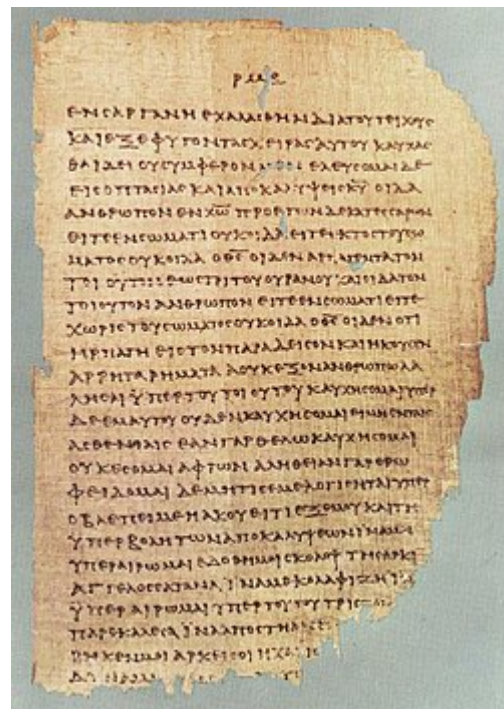 ΕΝ ΣΑΡΓΑΝΗ ΕΧΑΛΑΣΘΗΝ ΔΙΑ ΤΟΥ ΤΕΙΧΟΥΣ
ΚΑΙ ΕΞΕΦΥΓΟΝ ΤΑΣ ΧΕΙΡΑΣ ΑΥΤΟΥ ΚΑΥΧΑΣ
ΘΑΙ ΔΕΙ ΟΥ ΣΥΜΦΕΡΟΝ ΕΛΕΥΣΟΜΑΙ ΔΕ
ΕΙΣ ΟΠΤΑΣΙΑΣ ΚΑΙ ΑΠΟΚΑΛΥΨΕΙΣ Κ̅Υ̅ ΟΙΔΑ
ΑΝΘΡΩΠΟΝ ΕΝ Χ̅Ω̅ ΠΡΟ ΕΤΩΝ ΔΕΚΑΤΕΣΣΑΡΩΝ
ΕΙΤΕ ΕΝ ΣΩΜΑΤΙ ΟΥΚ ΟΙΔΑ ΕΙΤΕ ΕΚΤΟΣ ΤΟΥ ΣΩ
ΜΑΤΟΣ ΟΥΚ ΟΙΔΑ Ο Θ̅Σ̅ ΟΙΔΕΝ ΑΡΠΑΓΕΝΤΑ ΤΟΝ
ΤΟΙΟΥΤΟΝ ΕΩΣ ΤΡΙΤΟΥ ΟΥΡΑΝΟΥ ΚΑΙ ΟΙΔΑ ΤΟΝ
ΤΟΙΟΥΤΟΝ ΑΝΘΡΩΠΟΝ ΕΙΤΕ ΕΝ ΣΩΜΑΤΙ ΕΙΤΕ
ΧΩΡΙΣ ΤΟΥ ΣΩΜΑΤΟΣ ΟΥΚ ΟΙΔΑ Ο Θ̅Σ̅ ΟΙΔΕΝ ΟΤΙ
ΗΡΠΑΓΗ ΕΙΣ ΤΟΝ ΠΑΡΑΔΕΙΣΟΝ ΚΑΙ ΗΚΟΥΣΕΝ
ΑΡΡΗΤΑ ΡΗΜΑΤΑ Α ΟΥΚ ΕΞΟΝ ΑΝΘΡΩΠΩ ΛΑ
ΛΗΣΑΙ ΫΠΕΡ ΤΟΥ ΤΟΙΟΥΤΟΥ ΚΑΥΧΗΣΟΜΑΙ ΥΠΕΡ
ΔΕ ΕΜΑΥΤΟΥ ΟΥΔΕΝ ΚΑΥΧΗΣΟΜΑΙ ΕΙ ΜΗ ΕΝ ΤΑΙΣ
ΑΣΘΕΝΕΙΑΙΣ ΕΑΝ ΓΑΡ ΘΕΛΩ ΚΑΥΧΗΣΟΜΑΙ
ΟΥΚ ΕΣΟΜΑΙ ΑΦΡΩΝ ΑΛΗΘΕΙΑΝ ΓΑΡ ΕΡΩ
ΦΕΙΔΟΜΑΙ ΔΕ ΜΗ ΤΙΣ ΕΜΕ ΛΟΓΙΣΗΤΑΙ ΥΠΕΡ
Ο ΒΛΕΠΕΙ ΜΕ Η ΑΚΟΥΕΙ ΤΙ ΕΞ ΕΜΟΥ ΚΑΙ ΤΗ
ΫΠΕΡΒΟΛΗ ΤΩΝ ΑΠΟΚΑΛΥΨΕΩΝ ΪΝΑ ΜΗ
ΥΠΕΡΑΙΡΩΜΑΙ ΕΔΟΘΗ ΜΟΙ ΣΚΟΛΟΨ ΤΗ ΣΑΡΚΙ
ΑΓΓΕΛΟΣ ΣΑΤΑΝΑ ΪΝΑ ΜΕ ΚΟΛΑΦΙΖΗ
ΫΠΕΡΑΙΡΩΜΑΙ ΥΠΕΡ ΤΟΥΤΟΥ ΤΡΙΣ
ΠΑΡΕΚΑΛΕΣΑ ΪΝΑ ΑΠΟΣΤΗ
ΜΟΙ ΑΡΚΕΙ ΣΟΙ Η ΧΑΡΙΣ